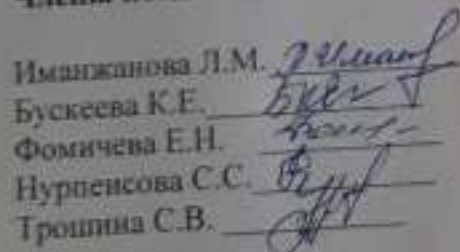 Иманжанова Л.М.
Бускеева К.Е.
Фомичева Е.Н.
Нурпеисова С.С.
Трошина С.В.